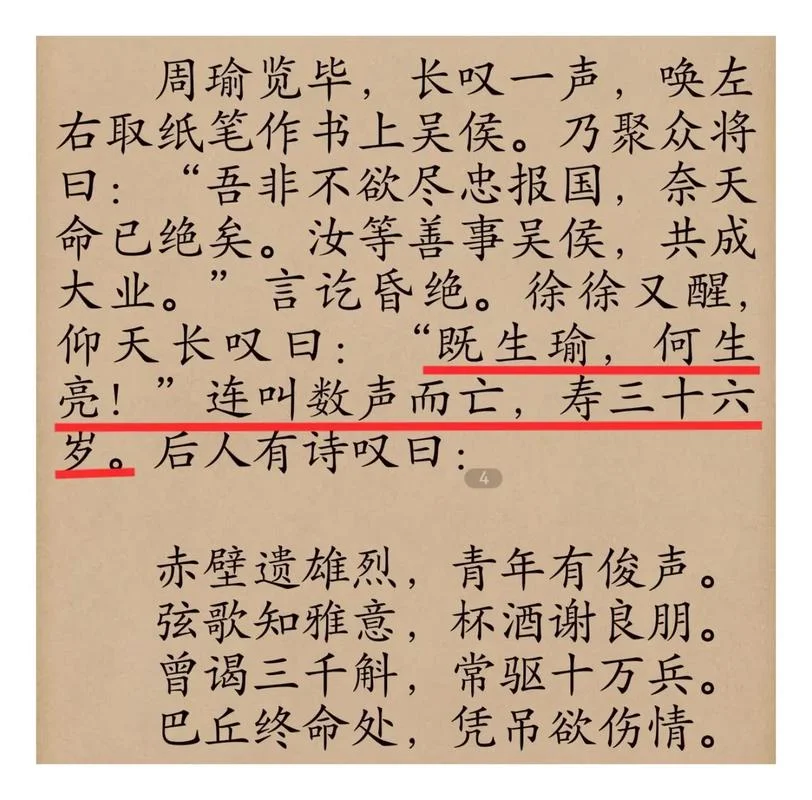 周瑜览毕，长叹一声，唤左
右取纸笔作书上吴侯。乃聚众将
曰：“吾非不欲尽忠报国，奈天
命已绝矣。汝等善事吴侯，共成
大业。”言讫昏绝。徐徐又醒，
仰天长叹曰：“既生瑜，何生
亮！”连叫数声而亡，寿三十六
岁。后人有诗叹曰：
4
赤壁遗雄烈，青年有俊声。
弦歌知雅意，杯酒谢良朋。
曾谒三千斛，常驱十万兵。
巴丘终命处，凭吊欲伤情。